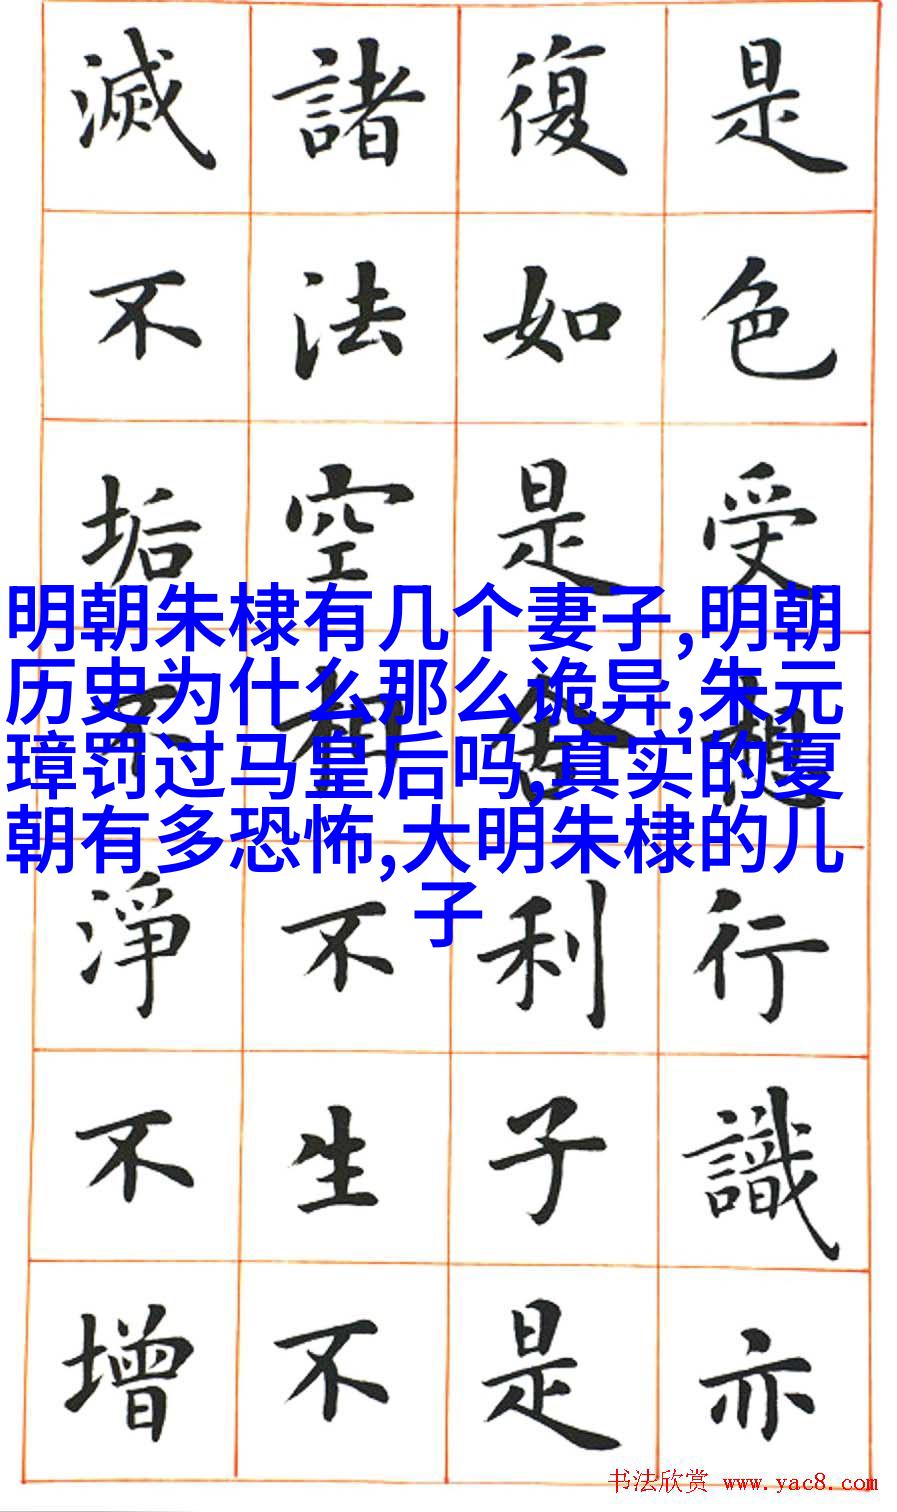 是色受想行識亦
復如是舍利子是
諸法空相不生不
滅不垢不淨不增
明朝朱棣有几个妻子,明朝
历史为什么那么诡异,朱元
璋罚过马皇后吗,真实的夏
朝有多恐怖,大明朱棣的儿
子
书法欣赏 www.yac8.com